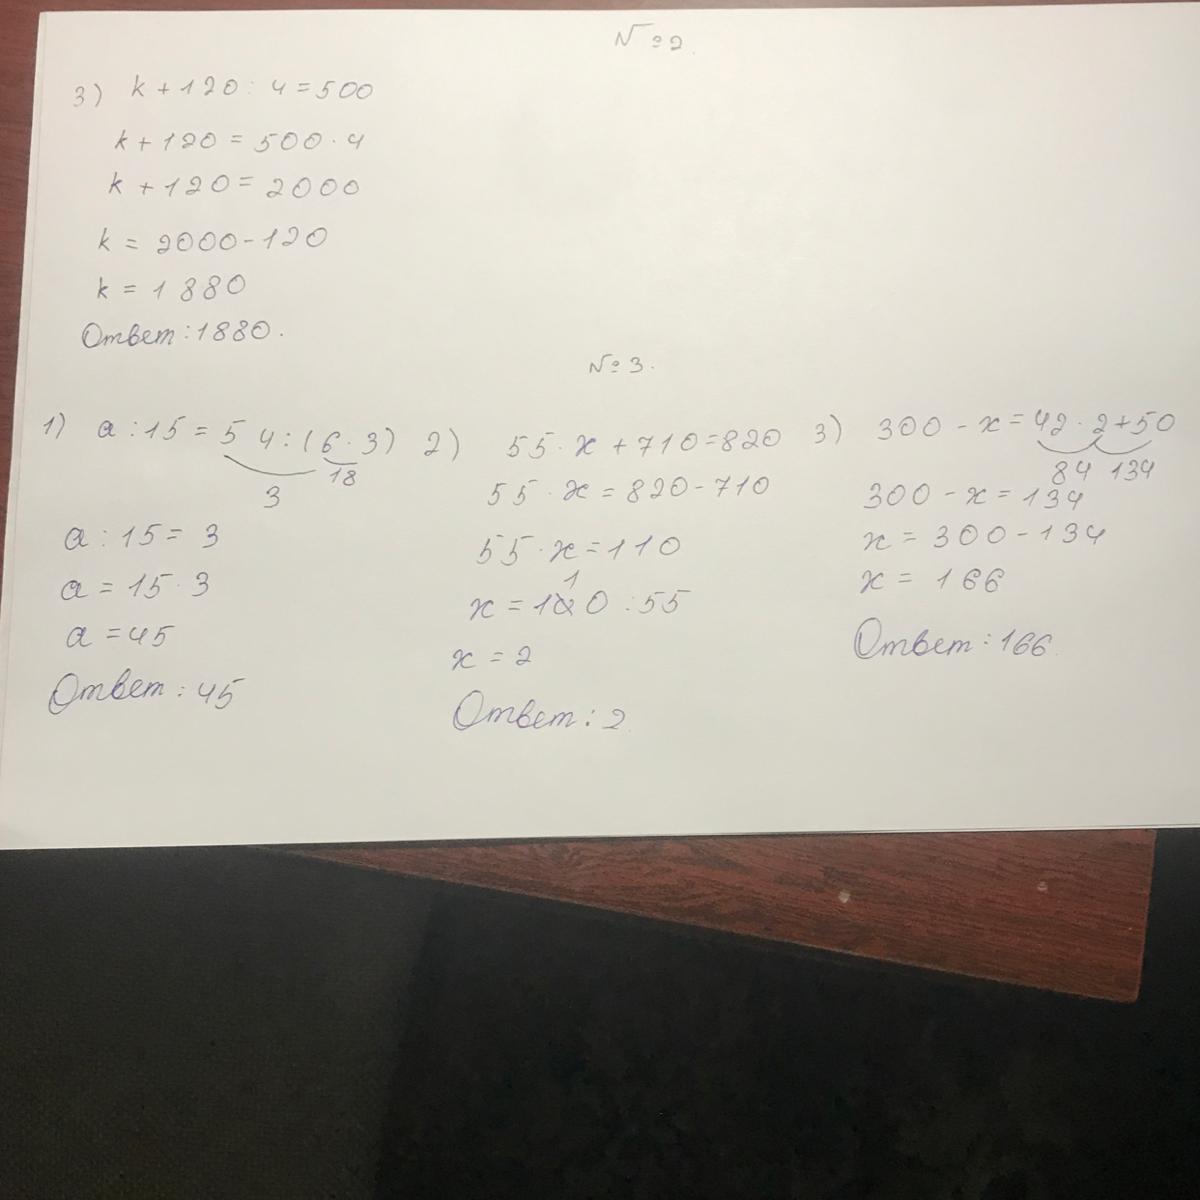 №2.
3) k+120:4=500
k+120=500·4
k+120=2000
k=2000-120
k=1880
Ответ:1880.
№3.
1) a:15=54:(6·3)
18
3
a:15=3
a=15·3
a=45
Ответ:45
2) 55·x+710=820
55·x=820-710
55·x=110
1
x=120:55
x=2
Ответ:2.
3) 300-x=42·2+50
84 134
300-x=134
x=300-134
x=166
Ответ:166.